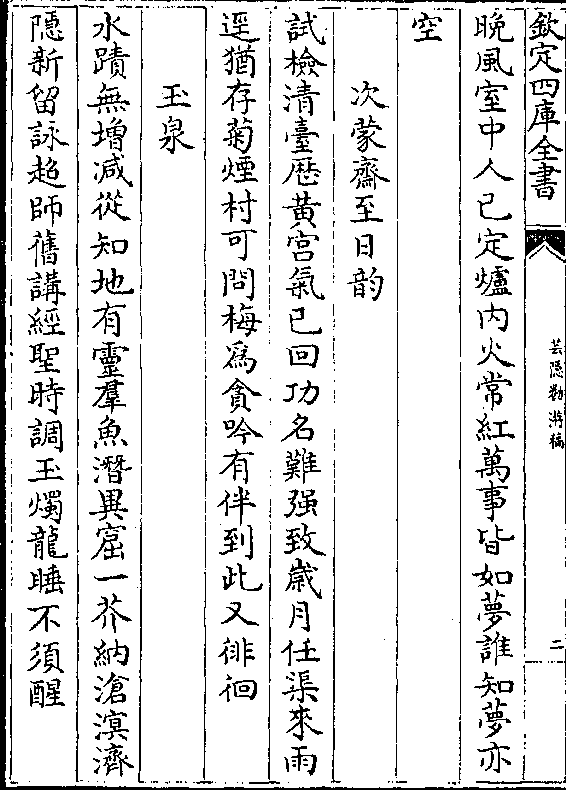 欽定四庫全書
芸隱勌游稿
二
晚風室中人已定爐内火常紅萬事皆如夢誰知夢亦
空
次蒙齋至日韵
試檢清臺歴黄宫氣已回功名難强致歳月任渠來雨
逕猶存菊煙村可問梅爲貪吟有伴到此又徘徊
玉泉
水蹟無增減從知地有靈羣魚潛異窟一芥納滄溟濟
隠新留詠超師舊講經聖時調玉燭龍睡不須醒